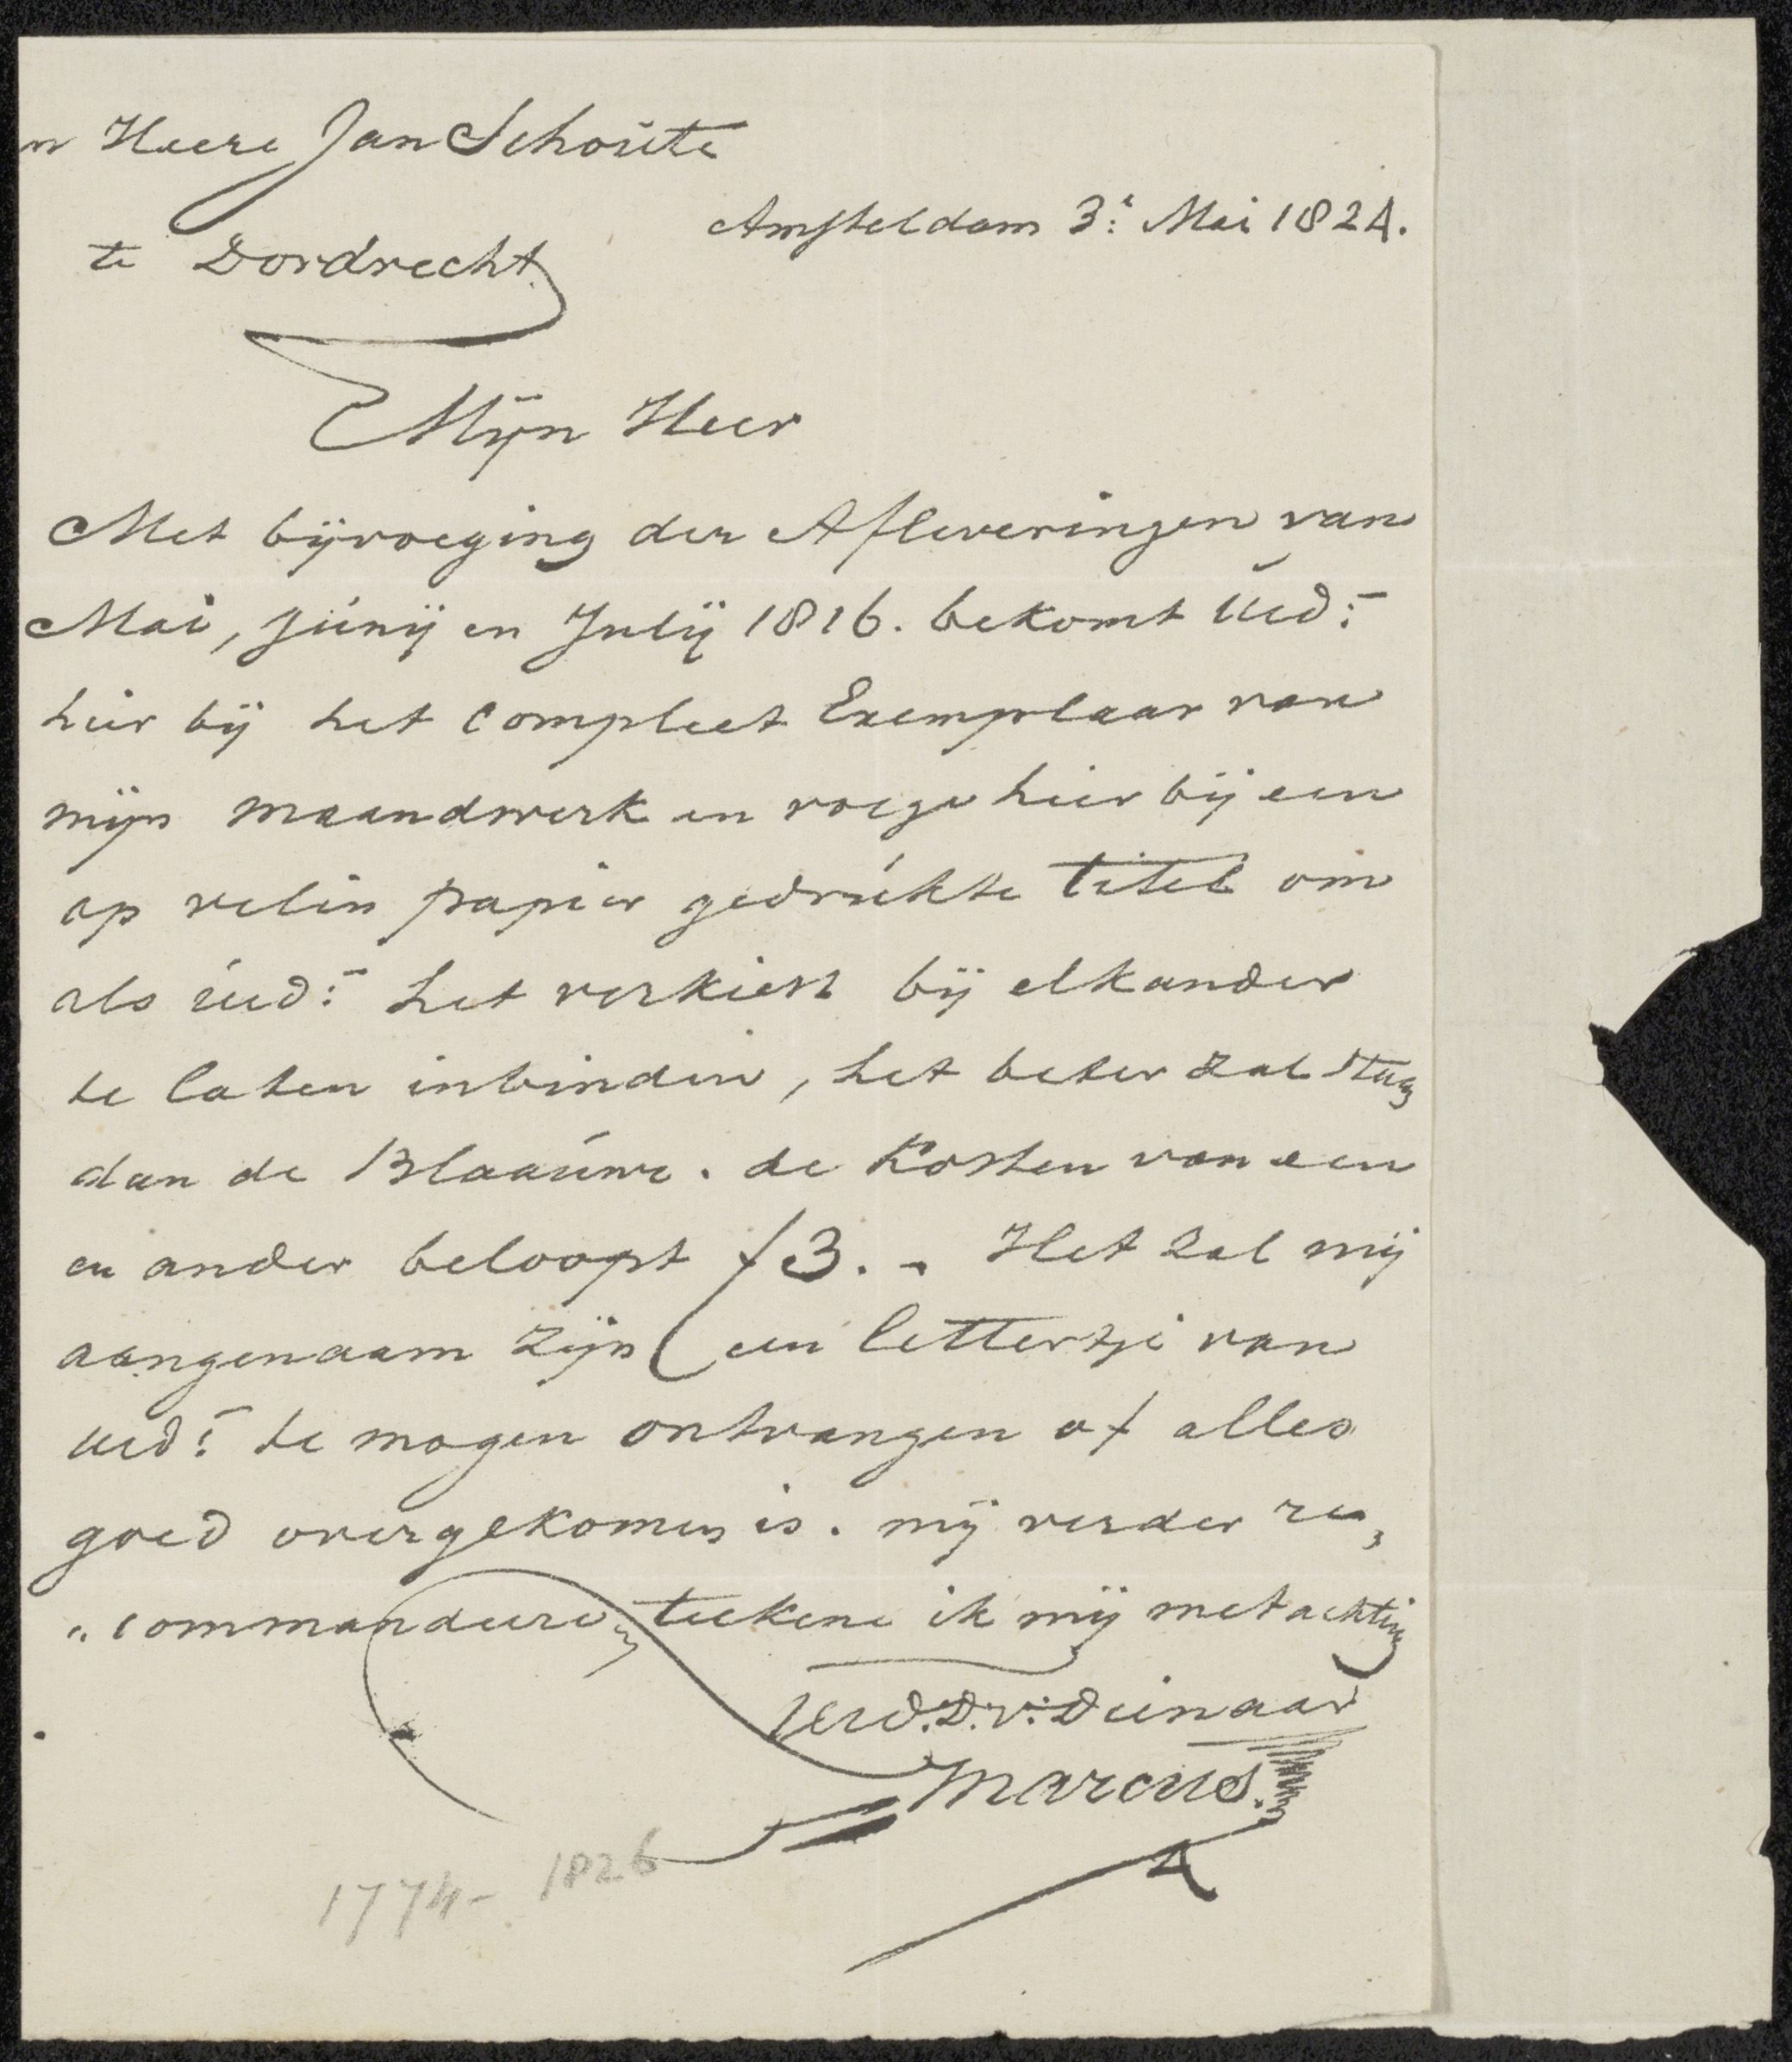 n Heere Jan Schoúte
Amsteldam 3.e Mai 1824.
te Dordrecht
Mijn Heer
Met bijvoeging der Afleveringen van
Mai, Júnij en Julij 1816. bekomt Úed:
hier bij het compleet Exemplaar van
mijn maandwerk en voege hier bij een
op velin papier gedrúkte titel om
als úed: het verkiest bij elkander
te laten inbinden, het beter zal staan
dan de Blaaúwe. de Kosten van een
en ander beloopt ƒ3. - Het zal mij
aangenaam zijn een lettertje van
Ued: te mogen ontvangen of alles
goed overgekomen is. mij verder re„
„commandeere, teekene ik mij met achting
Uwd. D. v: Dienaar
Marcus.
1774- 1826